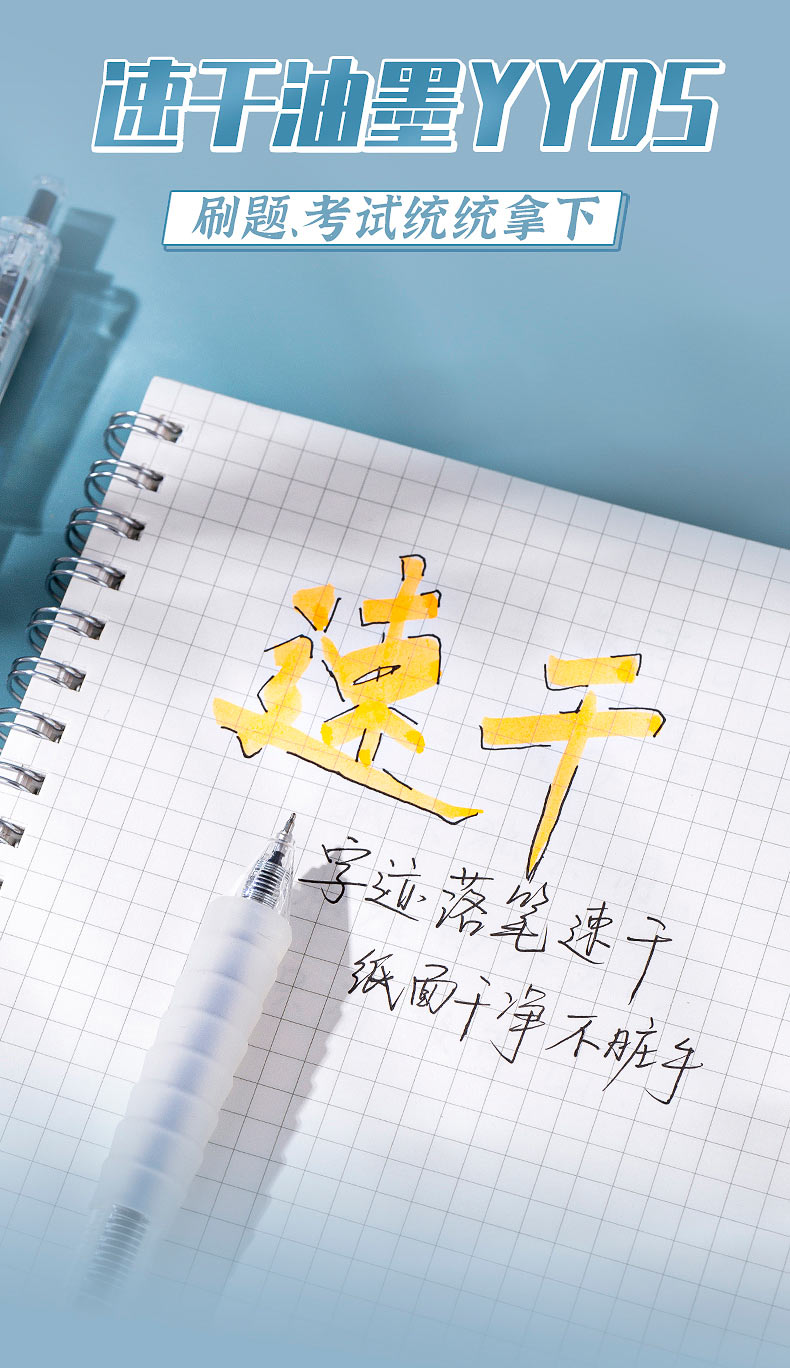 速干油墨YYDS
刷题、考试统统拿下
速干
字迹落笔速干
纸面干净不脏手